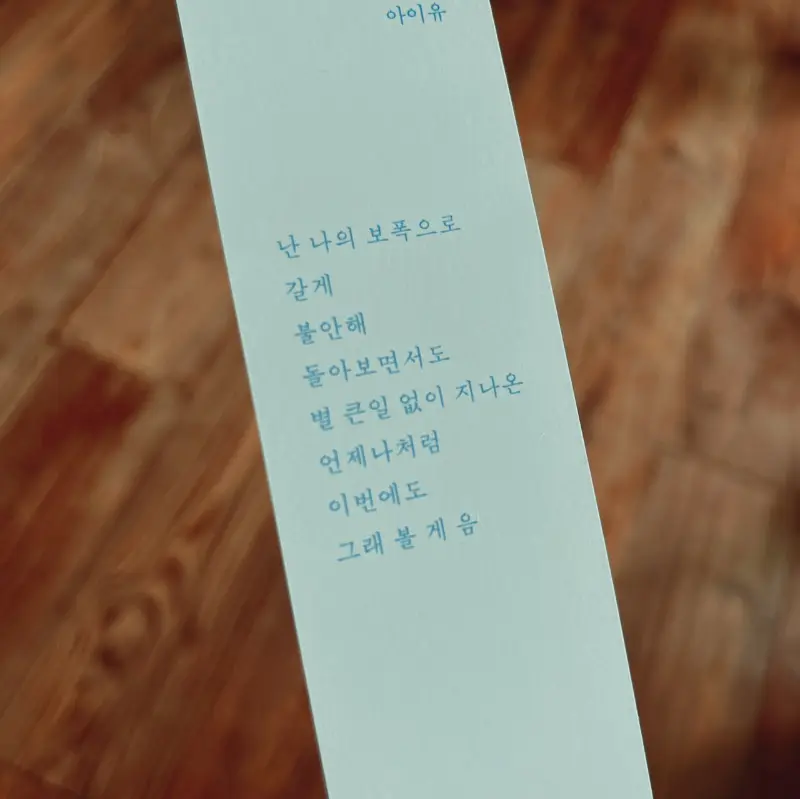 아이유
난 나의 보폭으로
갈게
불안해
돌아보면서도
별 큰일 없이 지나온
언제나처럼
이번에도
그래 볼 게 음